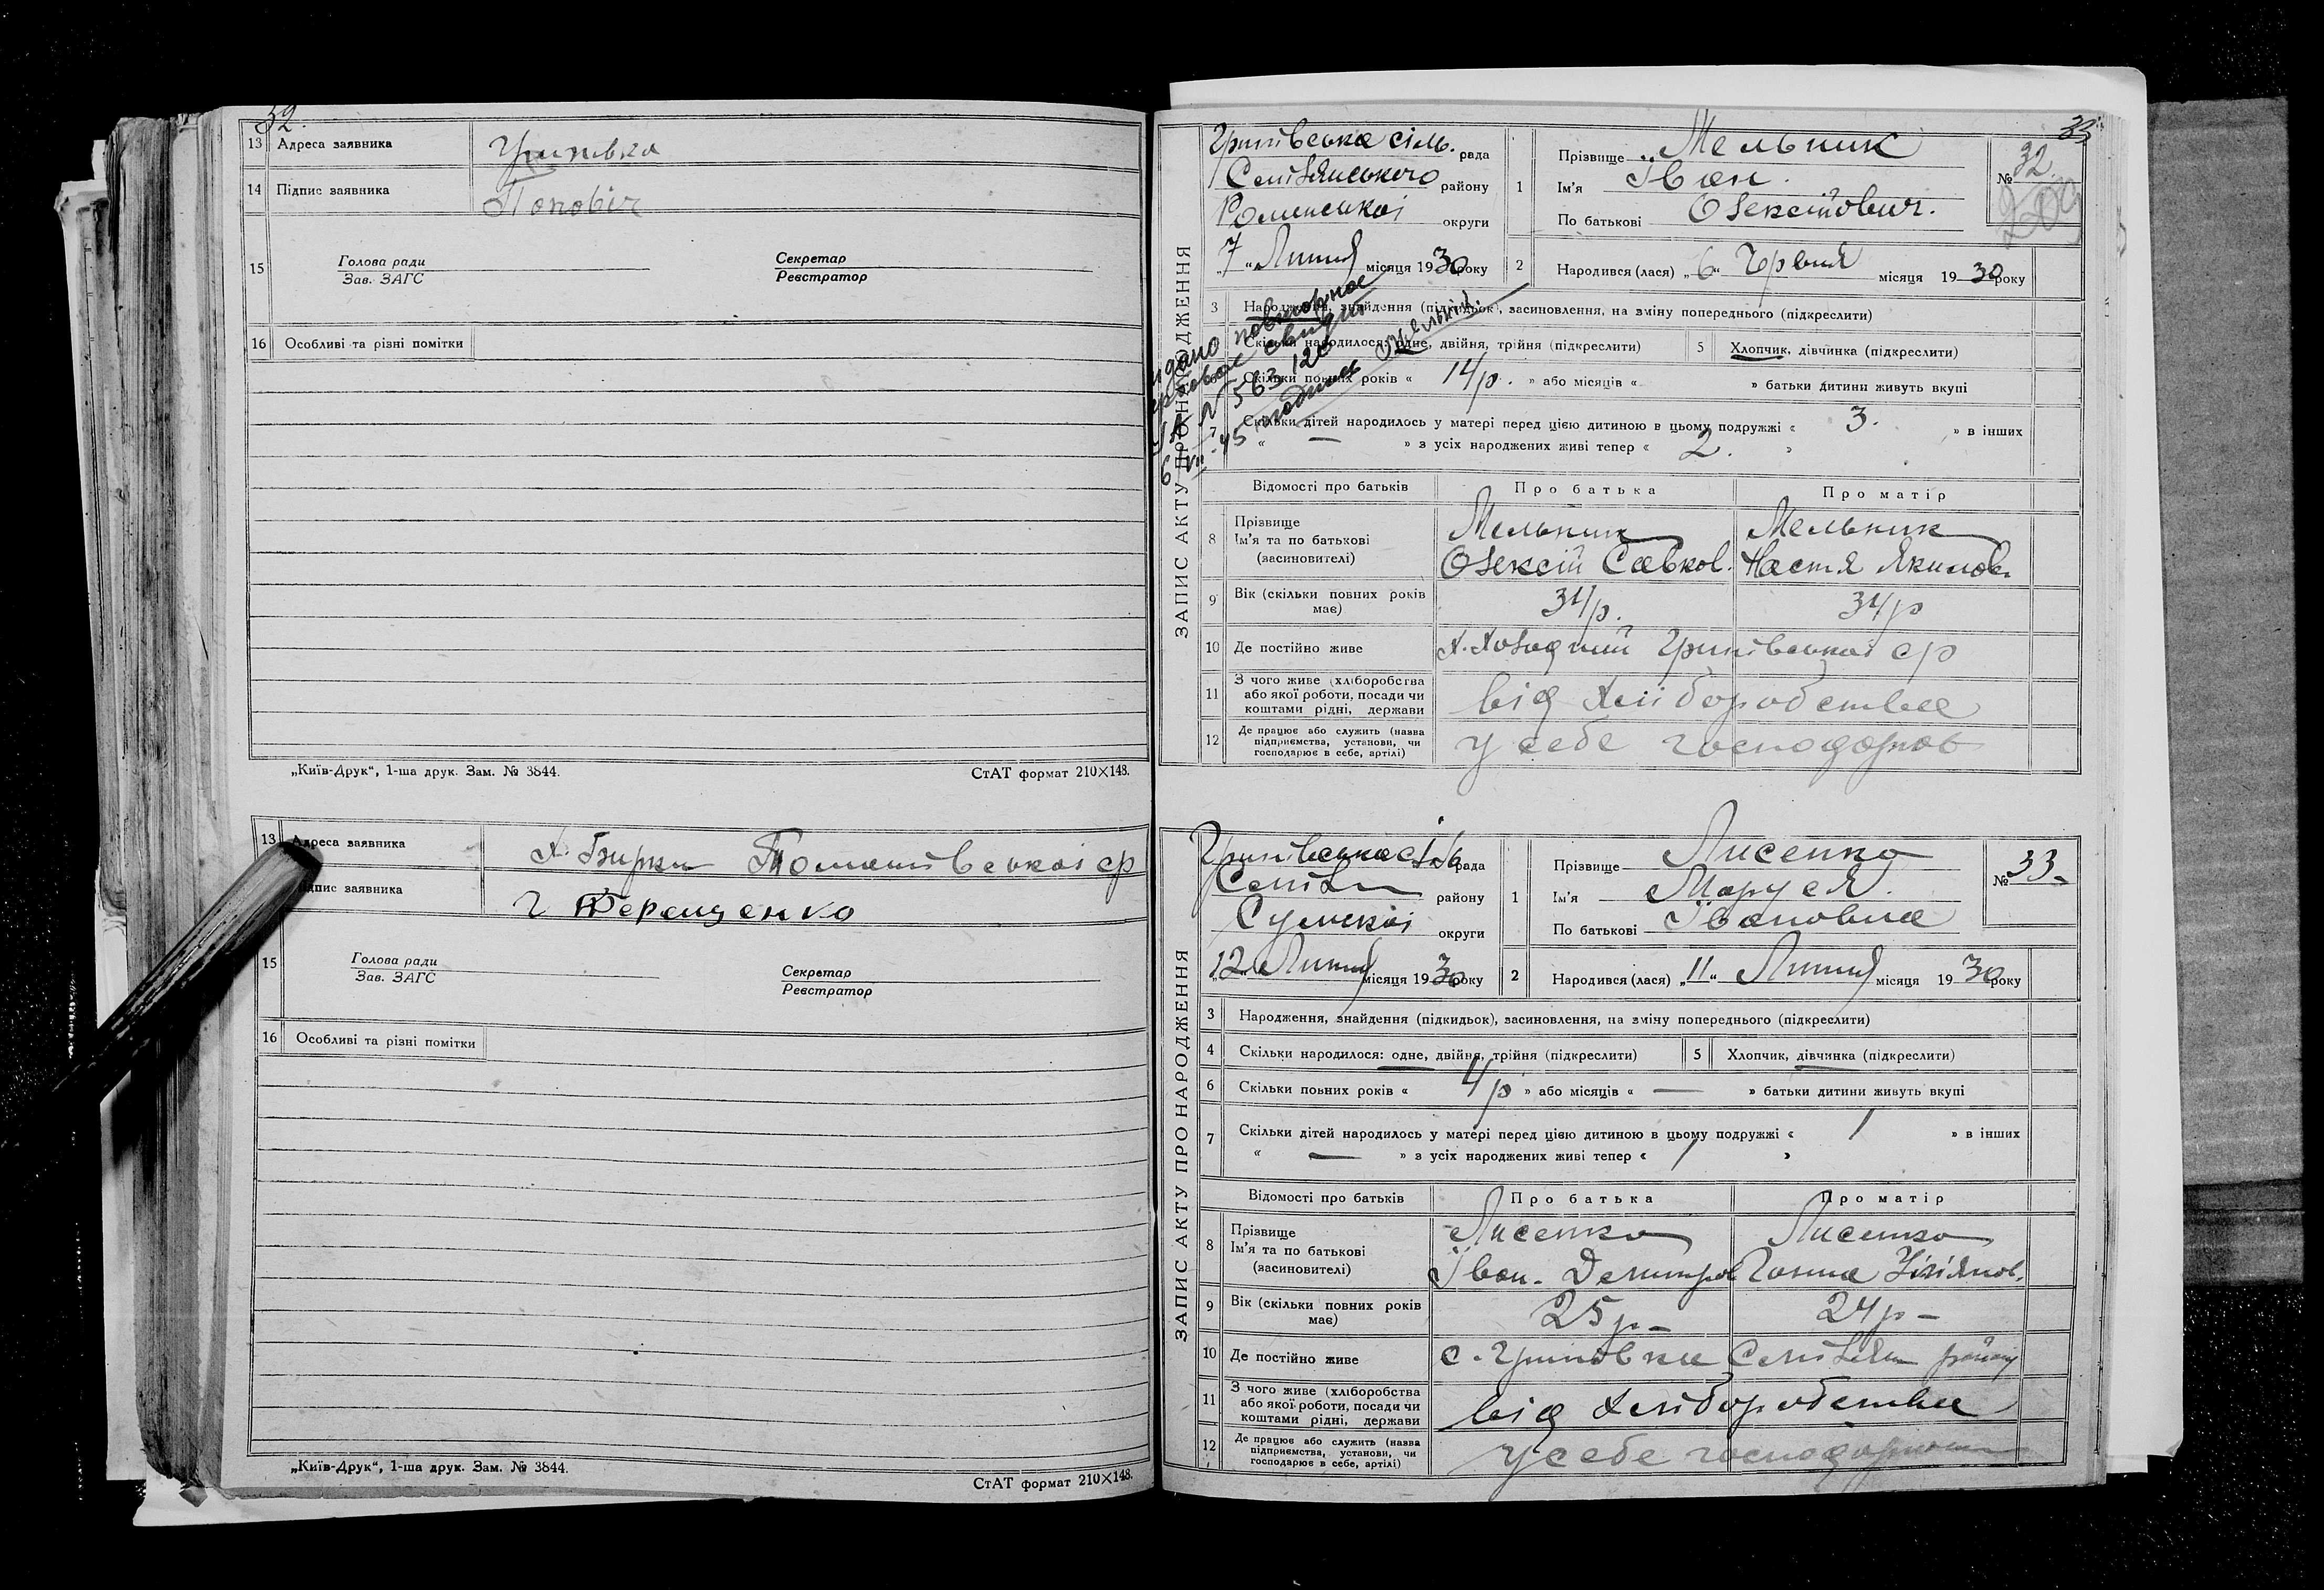 32.
13 Адреса заявника Гринівка
14 Підпис заявника Попович
15 Голова ради Секретар
Зав. ЗАГС Реєстратор
16 Особливі та різні помітки
„Київ-Друк“, 1-ша друк. Зам. № 3844. СтАТ формат 210×148.
13 Адреса заявника х. Бирки
Підпис заявника Терещенко
15 Голова ради Секретар
Зав. ЗАГС Реєстратор
16 Особливі та різні помітки
„Київ-Друк“, 1-ша друк. Зам. № 3844.
СтАТ формат 210×148.
33
ЗАПИС АКТУ ПРО НАРОДЖЕННЯ
Гринівська сіль. рада
району
Роменської округи
„7“ Липня місяця 1930 року
1 Прізвище Мельник
Ім'я Іван
По батькові Олексійович.
№ 32.
2 Народився (лася) „6“ Червня місяця 1930 року
3 Народження, знайдення (підкидьок), засиновлення, на зміну попереднього (підкреслити)
Скільки народилося: одне, двійня, трійня (підкреслити) 5 Хлопчик, дівчинка (підкреслити)
Скільки повних років « 14 р. » або місяців « » батьки дитини живуть вкупі
7 Скільки дітей народилось у матері перед цією дитиною в цьому подружжі « 3. » в інших
« — » з усіх народжених живі тепер « 2. »
повторное
N 563120
Відомості про батьків Про батька Про матір
8 Прізвище Мельник Мельник
Ім'я та по батькові
(засиновителі) Олексій Савков. Настя Якимов.
9 Вік (скільки повних років має) 34/р. 34/р
10 Де постійно живе х. Холодний Гринівської ср
11 З чого живе (хліборобства
або якої роботи, посади чи
коштами рідні, держави від хліборобства
12 Де працює або служить (назва
підприємства, установи, чи
господарює в себе, артілі) у себе господарств
ЗАПИС АКТУ ПРО НАРОДЖЕННЯ
Гринівська с/р рада
району
Сумської округи
„12“ Липня місяця 1930 року
1 Прізвище Лисенко
Ім'я Маруся
По батькові Івановна
№ 33
2 Народився (лася) „11“ Липня місяця 1930 року
3 Народження, знайдення (підкидьок), засиновлення, на зміну попереднього (підкреслити)
4 Скільки народилося: одне, двійня, трійня (підкреслити) 5 Хлопчик, дівчинка (підкреслити)
6 Скільки повних років « 4 р » або місяців « — » батьки дитини живуть вкупі
7 Скільки дітей народилось у матері перед цією дитиною в цьому подружжі « 1 » в інших
« — » з усіх народжених живі тепер « 1 »
Відомості про батьків Про батька Про матір
8 Прізвище Лисенко Лисенко
Ім'я та по батькові
(засиновителі) Іван Ганна
9 Вік (скільки повних років має) 25 р – 24 р –
10 Де постійно живе с. Гриновка району
11 З чого живе (хліборобства
або якої роботи, посади чи
коштами рідні, держави від хліборобства
12 Де працює або служить (назва
підприємства, установи, чи
господарює в себе, артілі) у себе